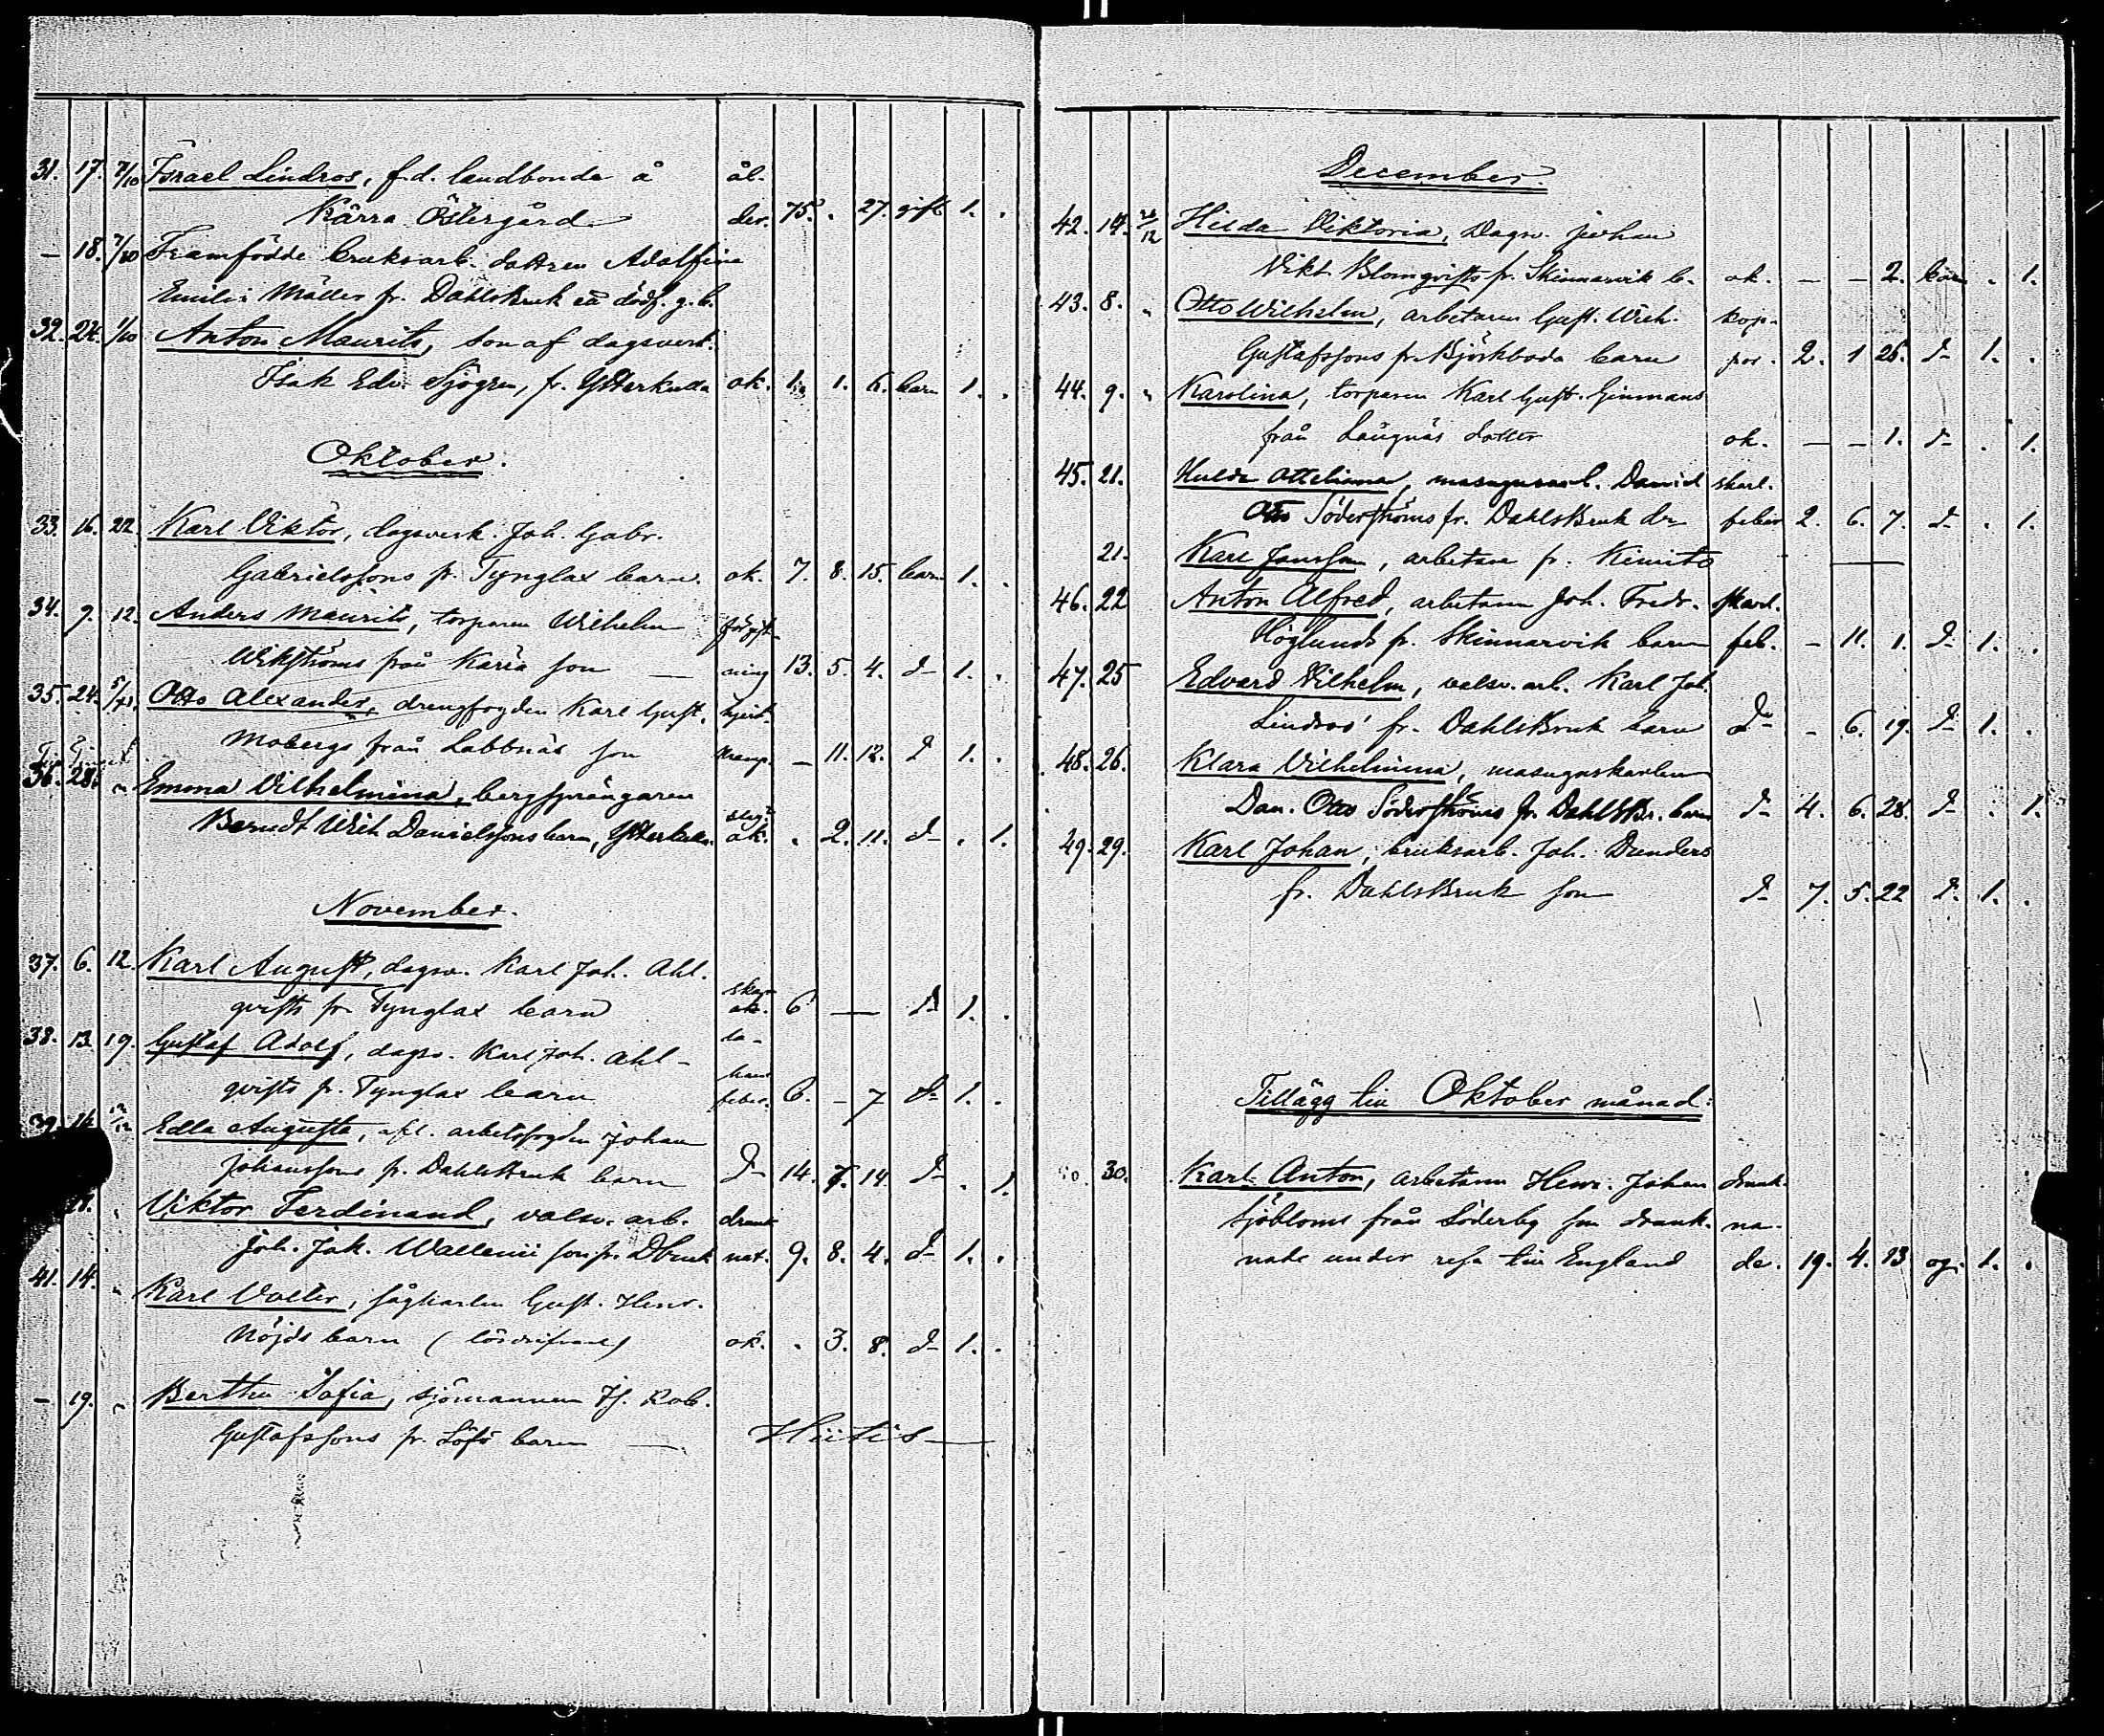 31. 17. 7/10 Israel Lindros, f.d. landbonde å ål-
Kärra Östergård der. 75. . 27. gift 1. .
— 18. 7/10 Framfödde bruksarb. dottren Adolfina
Emilia Möller fr. Dahlsbruk dödf. g.b.
32. 24. 1/10 Anton Maurits, son af dagsverk.
Isak Edv. Sjögren, fr. Ytterkulla ok. 1. 1. 6. barn 1. .
Oktober.
33. 16. 22. Karl Viktor, dagsverk. Joh. Gabr.
Gabrielssons fr. Tynglax barn. ok. 7. 8. 15. barn 1. .
34. 9. 12. Anders Maurits, torparen Wilhelm förgift-
Wikströms från Kärra son ning 13. 5. 4. d- 1. .
35. 24. Otto Alexander, drengfogden Karl Gust.
Mobergs från Labbnäs son kramp. — 11. 12. d 1. .
36. 28. " Emma Vilhelmina, bergsprängaren
Berndt Wilh Danielssons barn, ok. . 2. 11. d- . 1.
November.
37. 6. 12. Karl August, dagsv. Karl Joh. Ahl-
qvists fr Tynglax barn ok. 6 — d 1. .
38. 13. 19. Gustaf Adolf, dagsv. Karl Joh. Ahl-
qvists fr. Tynglax barn feber. 6. - 7 d- 1. .
39. 14. Edla Augusta, arbetsfogden Johan
Johanssons fr. Dahlsbruk barn d- 14. 7. 14. d- . 1.
Viktor Ferdinand, valsv. arb. drunk
Joh. Jak. Wallenii son fr. Dbruk nat. 9. 8. 4. d- 1. .
41. 14. " Karl Valter, sågkarlen Gust. Henr.
Nöjds barn ok. . 3. 8. d- 1. .
— 19. " Bertha Sofia, sjömannen
Gustafssons fr. barn — Hiitis —
December.
42. 17. Hilda Viktoria, Dagsv. Johan
Vikt. Blomqvists fr. Skinnarvik b. ok. — — 2. barn . 1.
43. 8. " Otto Wilhelm, arbetaren Gust. Wilh. kop-
Gustafssons fr. Björkboda barn por. 2. 1 25. d- 1. .
44. 9. " Karolina, torparen Karl Gust. Ginmans
från Långnäs dotter ok. — — 1. d- . 1.
45. 21. Hulda Ottiliana, masugnsarb. Daniel skarl.
Otto Söderströms fr. Dahlsbruk d:r feber 2. 6. 7. d- . 1.
21. Karl Jansson, arbetare fr. Kimito —
46. 22 Anton Alfred, arbetaren Joh. Fredr. skarl.
Höglunds fr. Skinnarvik barn feb. - 11. 1. d- 1. .
47. 25 Edvard Vilhelm, valsv. arb. Karl Joh.
Lindros' fr. Dahlsbruk barn d- - 6. 19. d- 1. .
48. 26. Klara Vilhelmina, masugnskarlen
Dan. Otto Söderströms fr. Dahlsbr. barn d- 4. 6. 28. d- . 1.
49. 29. Karl Johan, bruksarb. Joh. Dunders
fr. Dahlsbruk son d- 7. 5. 22 d- 1. .
Tillägg till Oktober månad:
30. Karl Anton, arbetaren Henr. Johan drunk-
Sjöbloms från Söderby son drunk- na-
nade under resa till England de. 19. 4. 13 og. 1. .